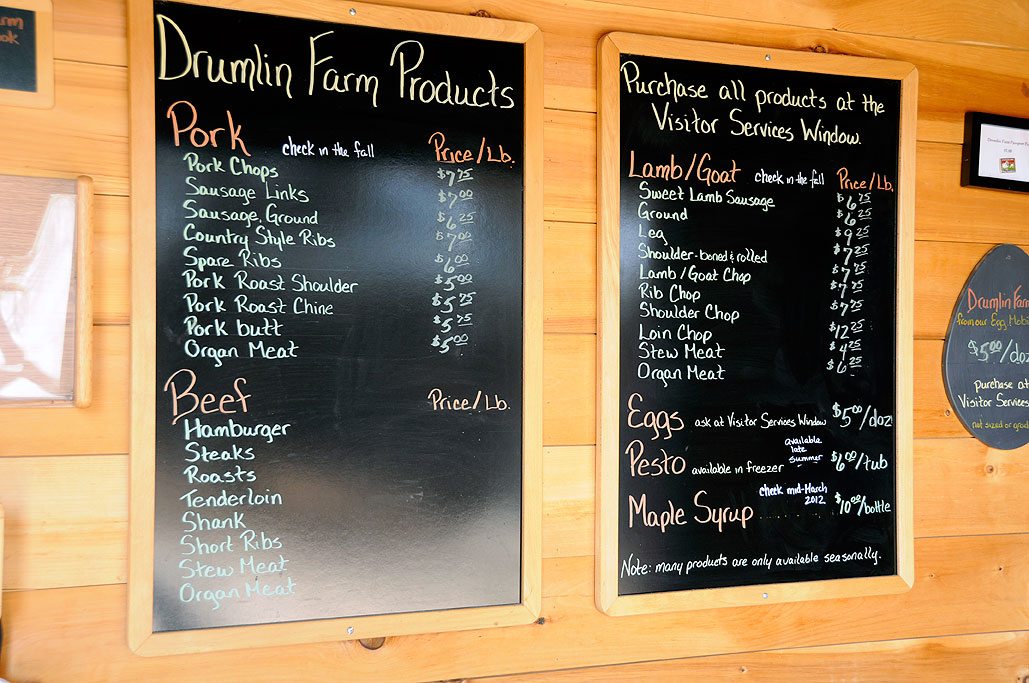 Drumlin Farm Products
Pork check in the fall Price/Lb.
Pork Chops $7.75
Sausage Links $7.00
Sausage, Ground $6.25
Country Style Ribs $7.00
Spare Ribs $6.00
Pork Roast Shoulder $5.00
Pork Roast Chine $5.75
Pork butt $5.75
Organ Meat $5.00
Beef Price/Lb.
Hamburger
Steaks
Roasts
Tenderloin
Shank
Short Ribs
Stew Meat
Organ Meat
Purchase all products at the
Visitor Services Window.
Lamb/Goat check in the fall Price/Lb.
Sweet Lamb Sausage $6.75
Ground $6.25
Leg $9.25
Shoulder-boned & rolled $7.25
Lamb/Goat Chop $7.75
Rib Chop $7.75
Shoulder Chop $7.75
Loin Chop $12.25
Stew Meat $4.75
Organ Meat $6.25
Eggs ask at Visitor Services Window $5.00/doz
Pesto available in freezer available late summer $6.00/tub
Maple Syrup check mid-March 2012 $10.00/bottle
Note: many products are only available seasonally.
Drumlin Farm
from our Egg
$5.00/doz
purchase at
Visitor Services
not sized or